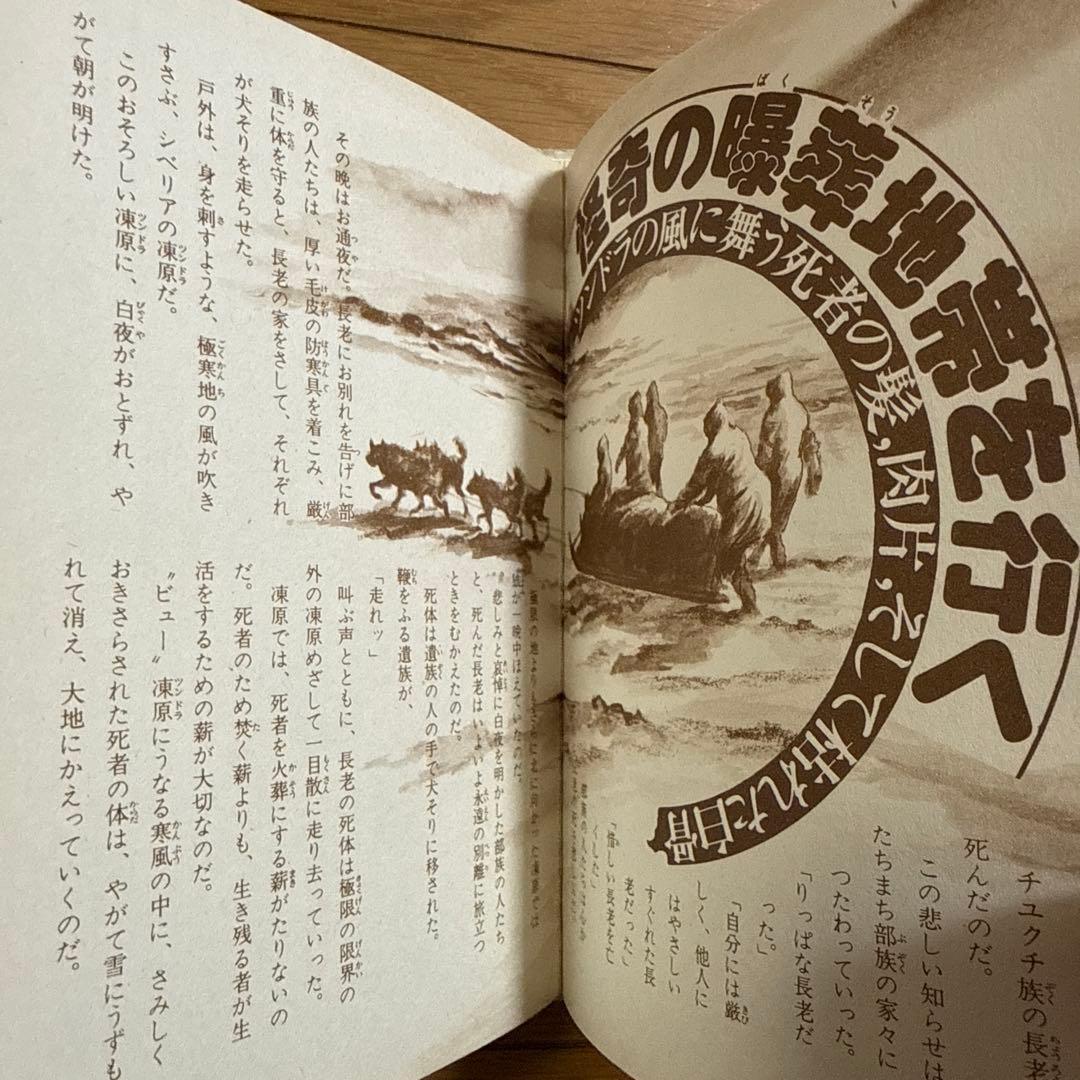 怪奇の曝葬地帯を行く
ツンドラの風に舞う死者の髪、肉片、そして枯れた白骨
チュクチ族の長老
死んだのだ。
この悲しい知らせは
たちまち部族の家々に
つたわっていった。
「りっぱな長老だ
った」
「自分には厳
しく、他人に
はやさしい
すぐれた長
老だった」
「惜しい長老を亡
くした」
その晩はお通夜だ。長老にお別れを告げに部
族の人たちは、厚い毛皮の防寒具を着こみ、厳
重に体を守ると、長老の家をさして、それぞれ
が犬そりを走らせた。
戸外は、身を刺すような、極寒地の風が吹き
すさぶ、シベリアの凍原だ。
このおそろしい凍原に、白夜がおとずれ、や
がて朝が明けた。
極限の地より
が一晩中ほえていたのだ。
悲しみと哀悼に白夜を明かした部族の人たち
と、死んだ長老はいよいよ永遠の別離に旅立つ
ときをむかえたのだ。
死体は遺族の人の手で犬そりに移された。
鞭をふる遺族が、
「走れッ」
叫ぶ声とともに、長老の死体は極限の限界の
外の凍原めざして一目散に走り去っていった。
凍原では、死者を火葬にする薪がたりないの
だ。死者のため焚く薪よりも、生き残る者が生
活をするための薪が大切なのだ。
〝ビュー〟凍原にうなる寒風の中に、さみしく
おきさらされた死者の体は、やがて雪にうずも
れて消え、大地にかえっていくのだ。